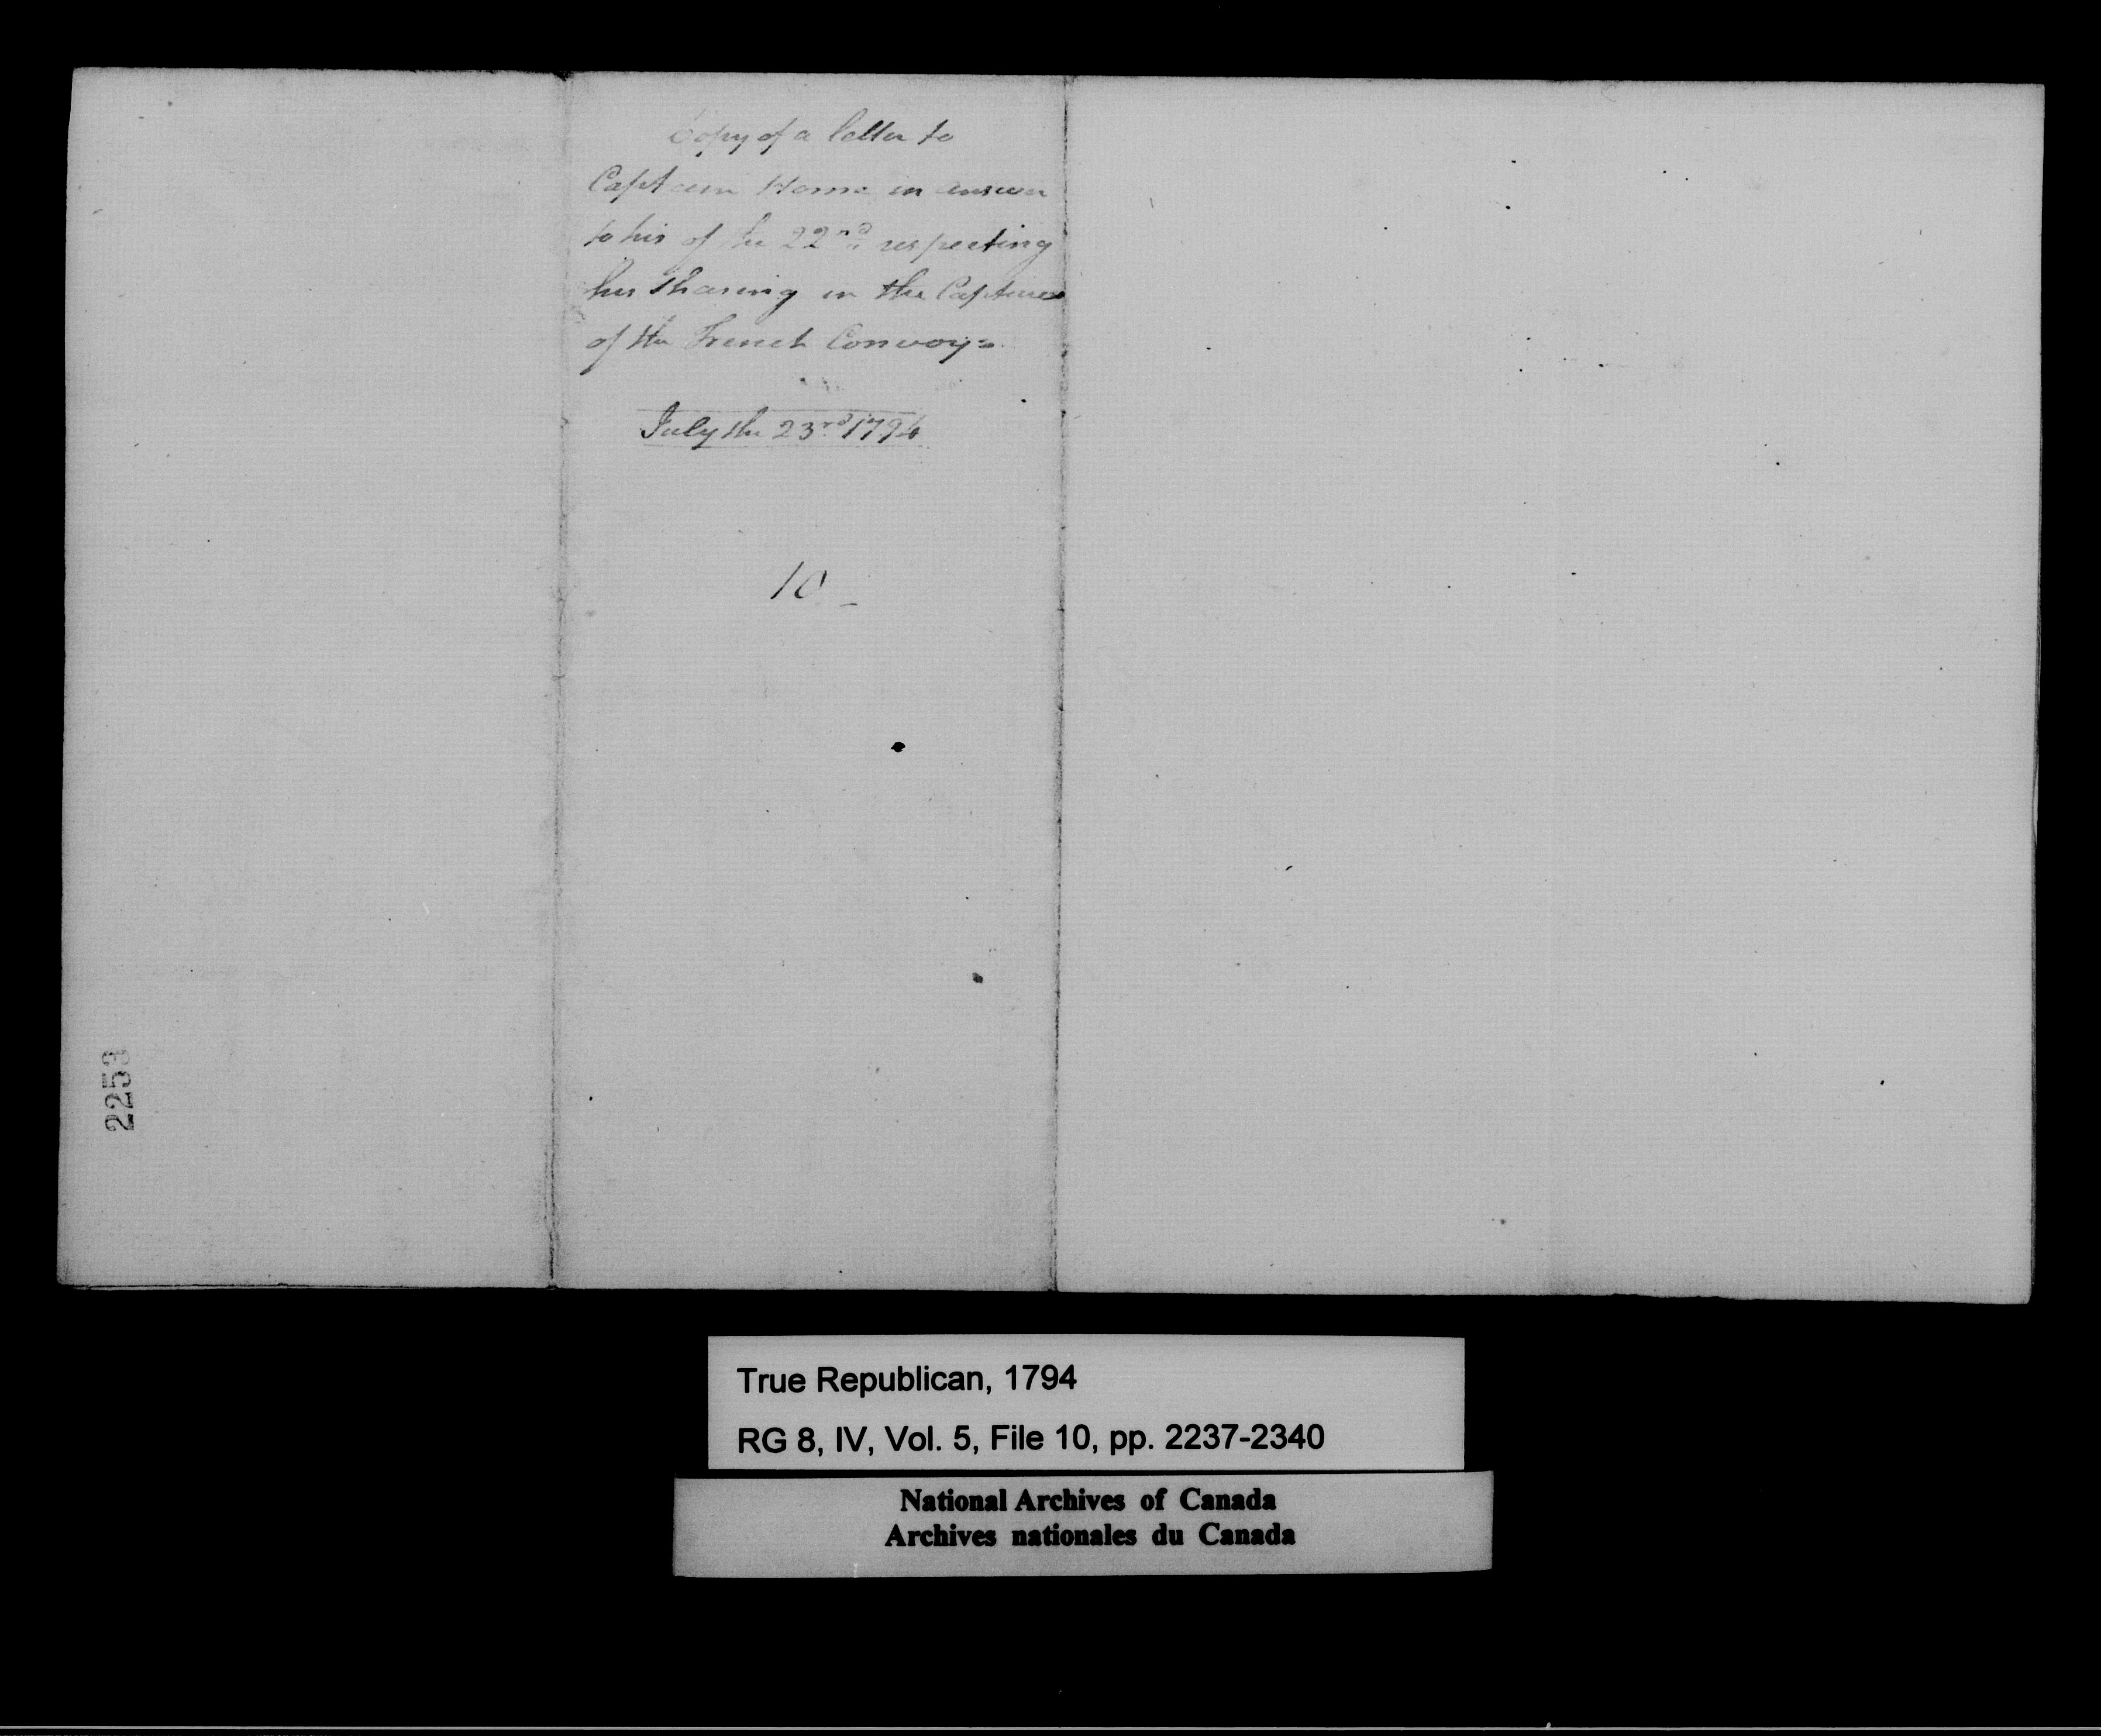 Copy of a letter to
Captain Home in answer
to his of the 22nd respecting
his Sharing in the Captures
of the French Convoy=
July the 23rd 1794
10
2253
True Republican, 1794
RG 8, IV, Vol. 5, File 10, pp. 2237-2340
National Archives of Canada
Archives nationales du Canada